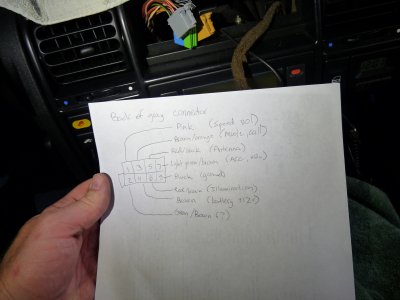 Back of gray connector
Pink (Speed sol)
Brown/orange (Mute, cell)
Red/black (Antenna)
Light green/brown (ACC,
Black (ground)
Red/brown (Illumination)
Brown (battery +12v)
Green/Brown (?)
1 3 5 7
2 4 6 8